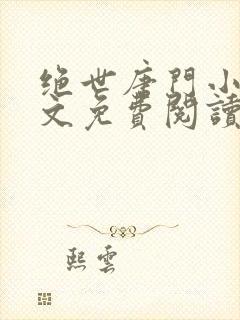 绝世唐門小
文免費閱讀
熙雲